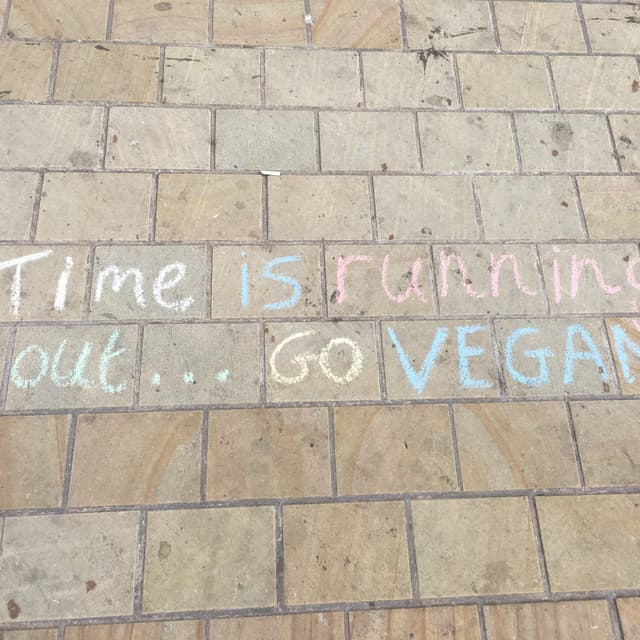 Time is runnin
out... GO VEGAN